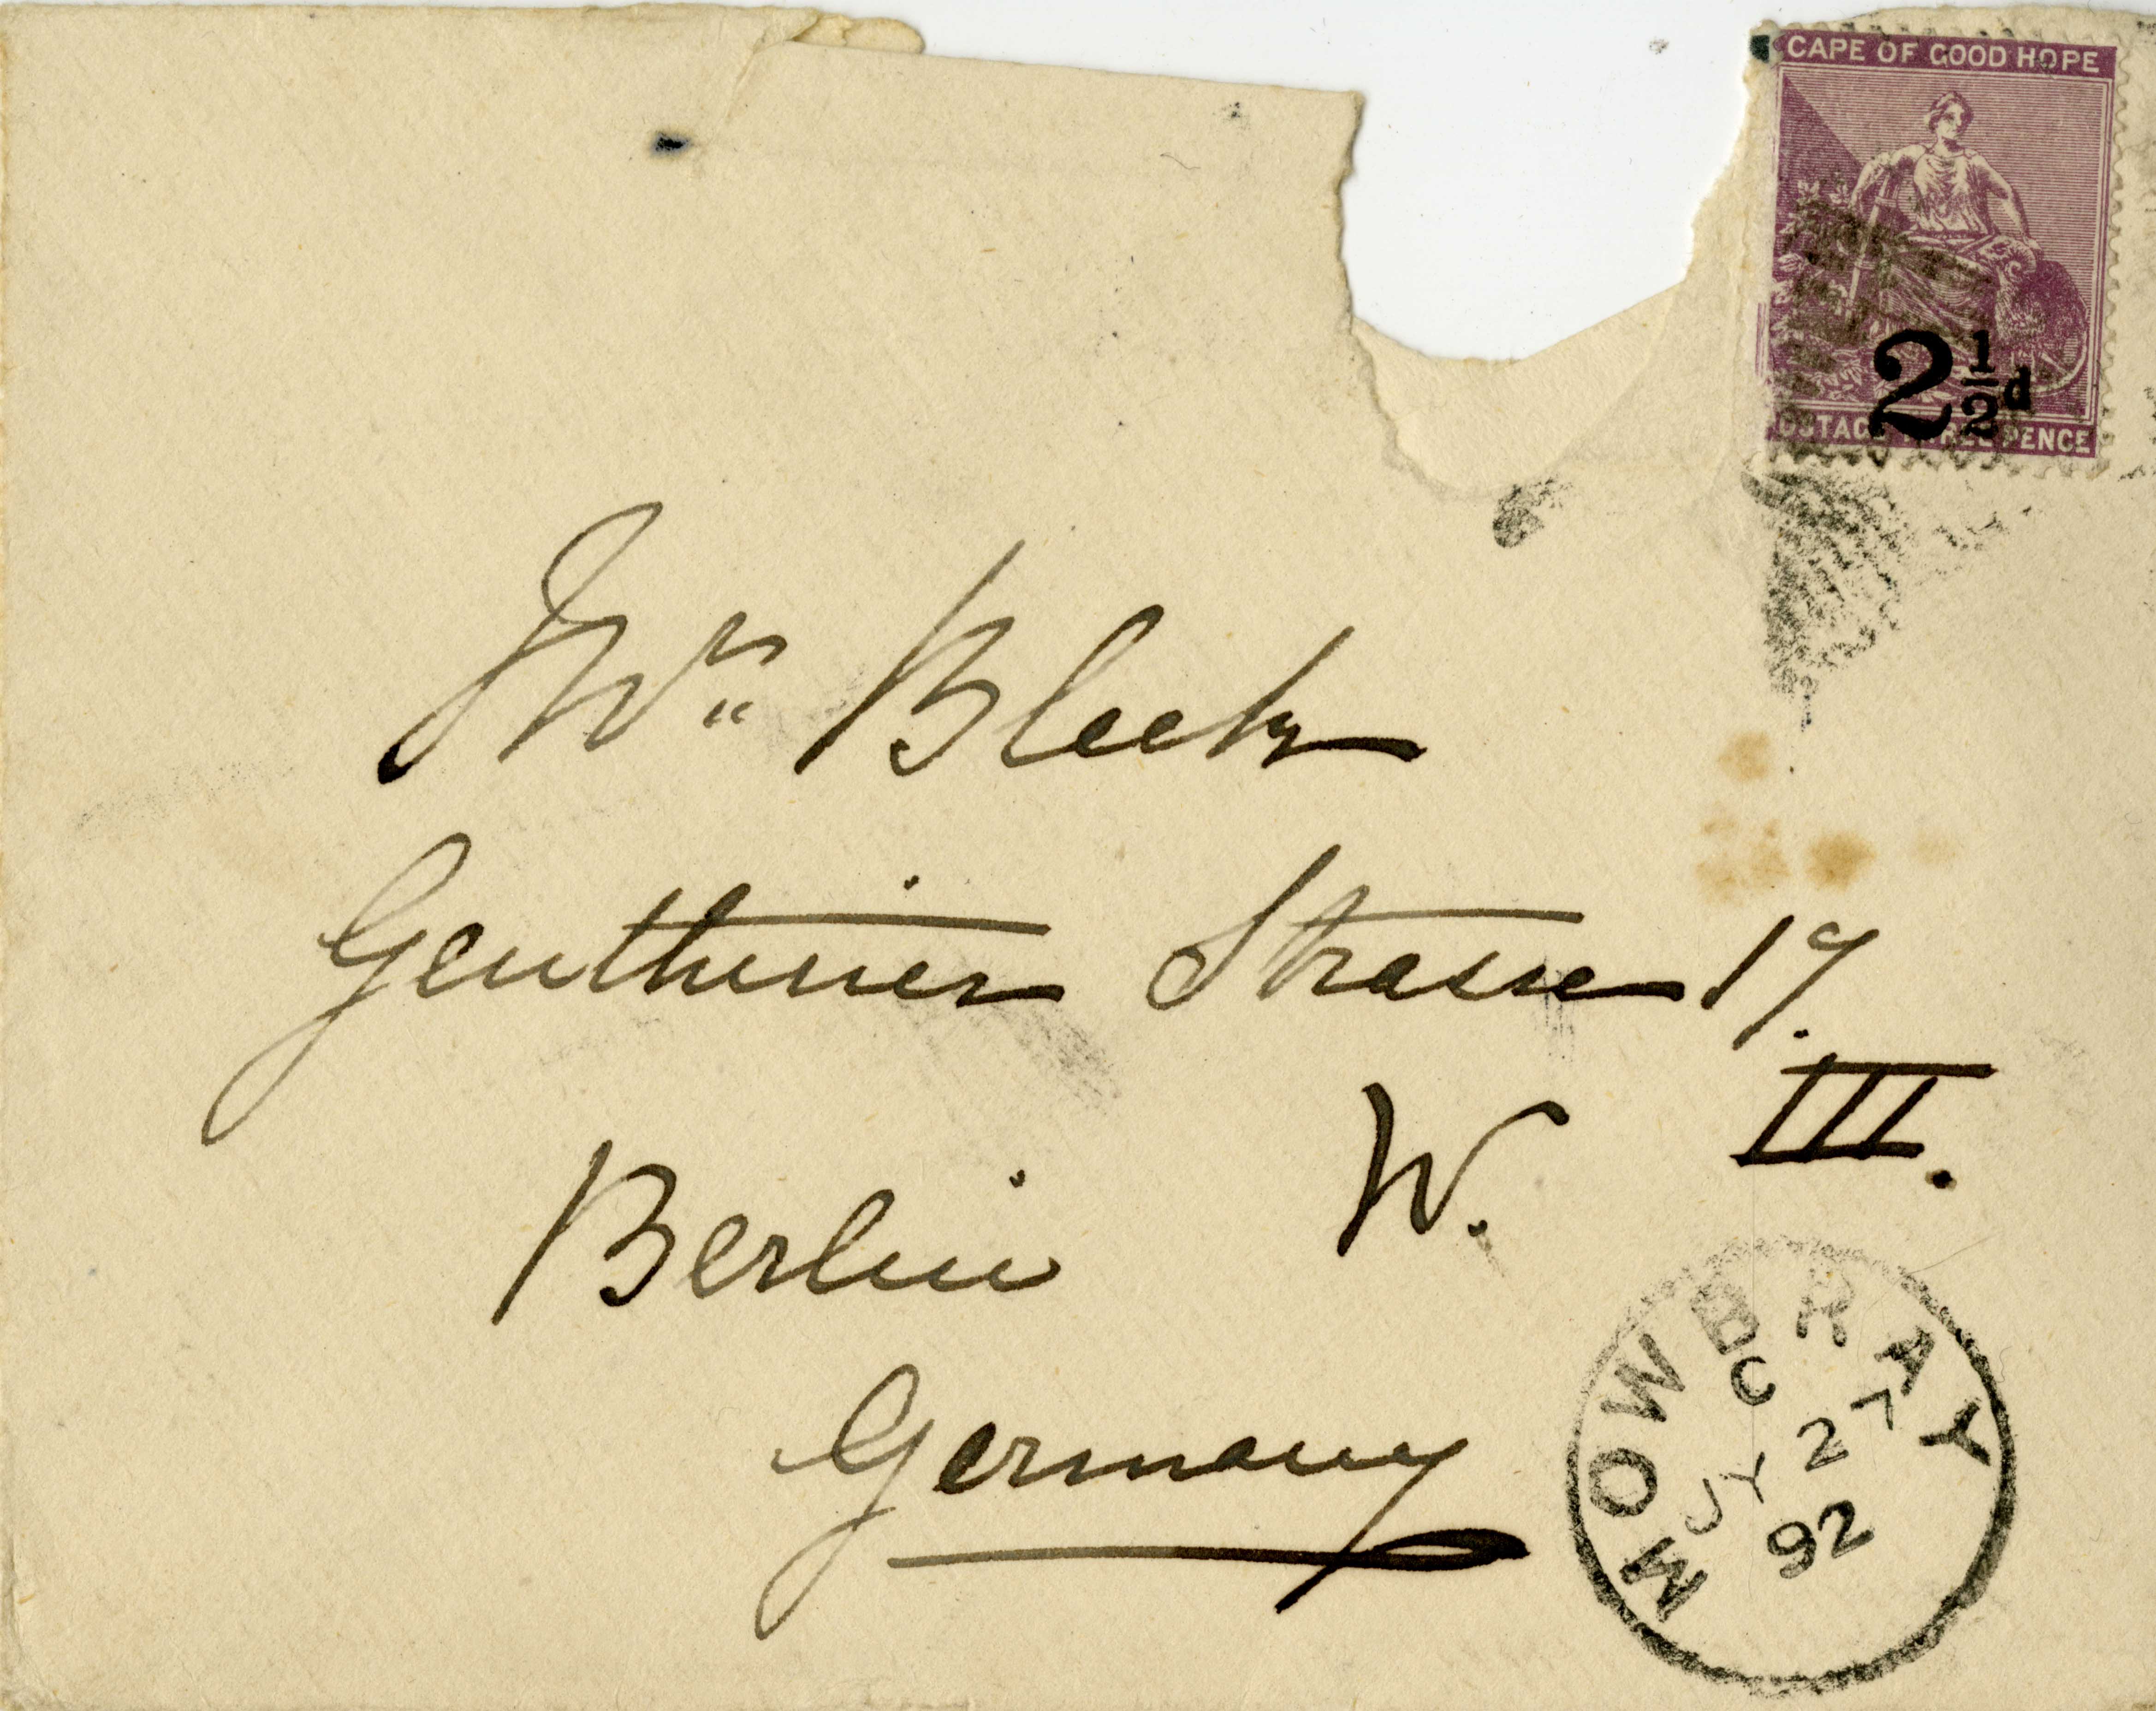 CAPE OF GOOD HOPE
2½d
POSTAGE THREE PENCE
Mrs Bleek
Genthiner Strasse 19.
III.
Berlin W.
Germany
MOWBRAY
C
JY 27
92